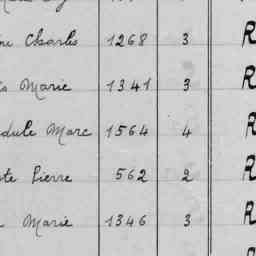 Charles 1268 3 R
Marie 1341 3 R
dule Marc 1564 4 R
te Pierre 562 2 R
Marie 1346 3 R